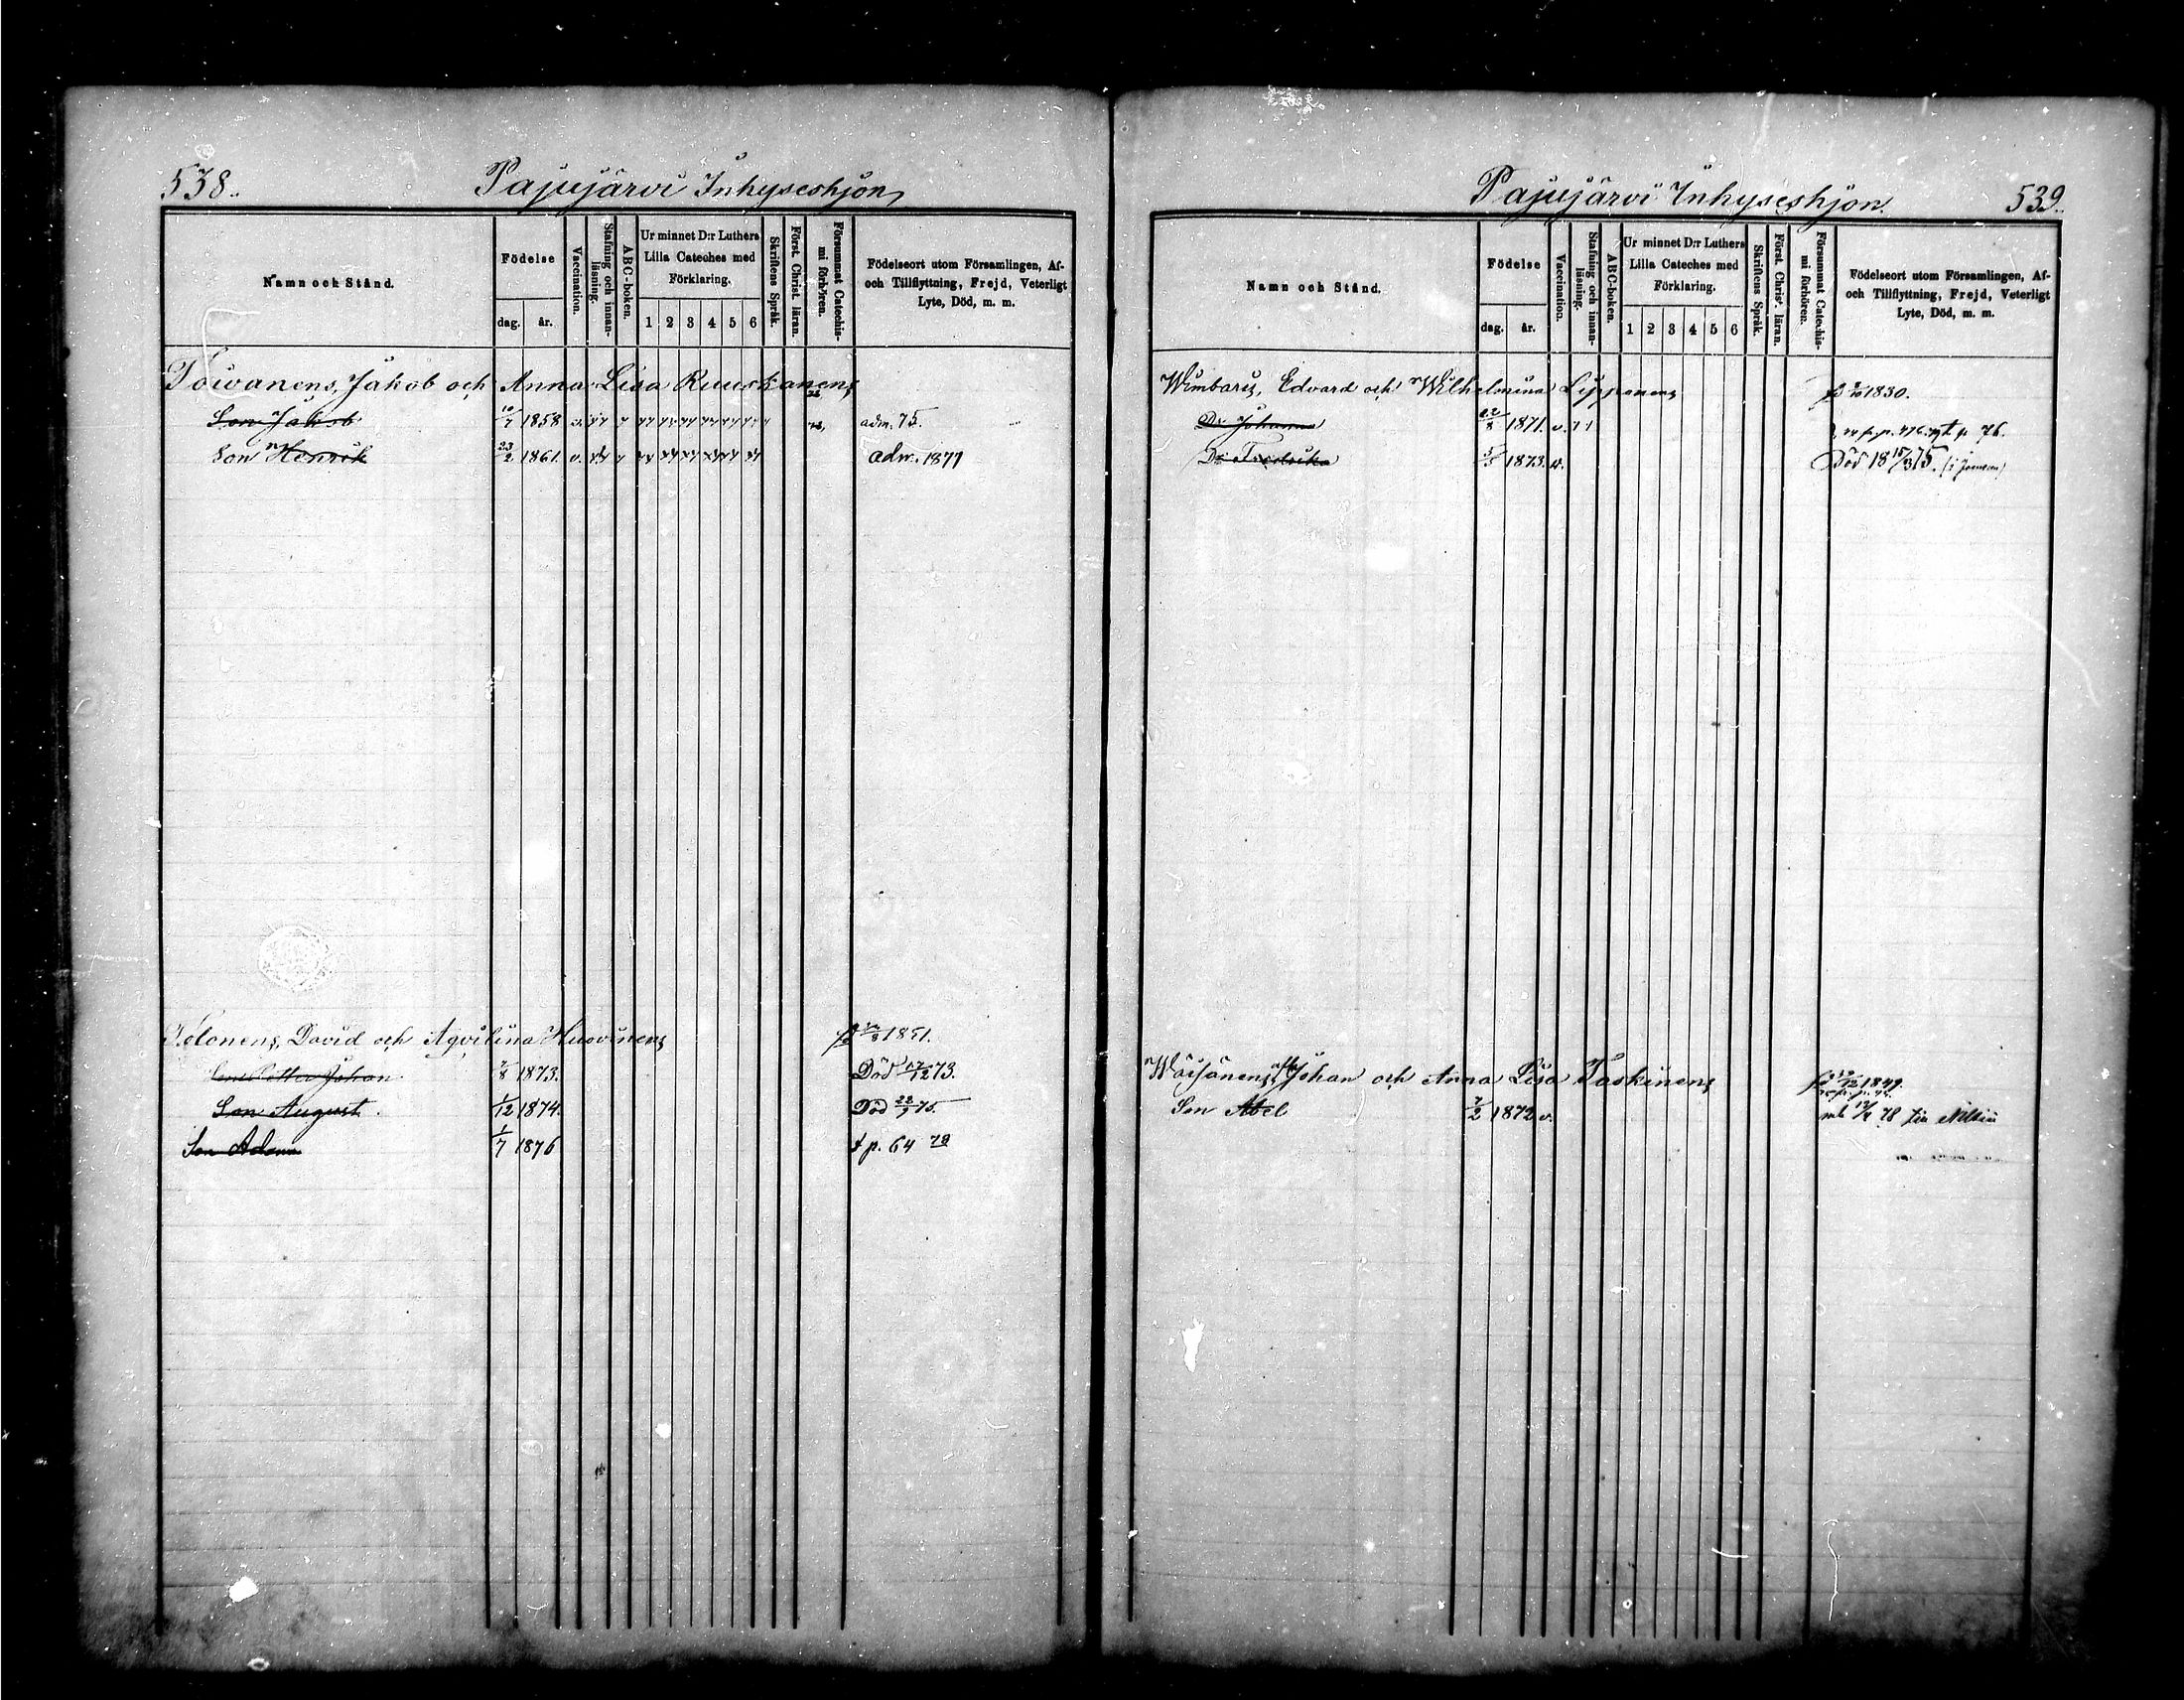 538.
Pajujärvi Inhyseshjon
Namn och Stånd.
Födelse
dag.
år.
Vaccination.
Stafning och innan-
läsning.
ABC-boken.
Ur minnet D:r Luthers
Lilla Cateches med
Förklaring.
1 2 3 4 5 6
Skriftens Språk.
Först. Christ. läran.
Försummat Catechis-
mi förhören.
Födelseort utom Församlingen, Af-
och Tillflyttning, Frejd, Veterligt
Lyte, Död, m. m.
Toivanens, Jakob och Anna Lisa Ruuskanens
Son Jakob 10/7 1858 adm. 75.
Son Henrik 23/2 1861. v. adm. 1877
Tolonens, David och Aqvilina Huovinens 1851.
Son Petter Johan 7/8 1873. Död 12 73.
Son August. 1/12 1874. Död 75
Son Adam 1/7 1876 p. 64 78
Pajujärvi Inhyseshjon.
539.
Namn och Stånd.
Födelse
dag.
år.
Vaccination.
Stafning och innan-
läsning.
ABC-boken.
Ur minnet D:r Luthers
Lilla Cateches med
Förklaring.
1 2 3 4 5 6
Skriftens Språk.
Först. Christ. läran.
Försummat Catechis-
mi förhören.
Födelseort utom Församlingen, Af-
och Tillflyttning, Frejd, Veterligt
Lyte, Död, m. m.
Wimbaris, Edvard och Wilhelmina Lipponens 1830.
Dr Johanna 22/8 1871. v. 76.
Dr Fredrika 1873. v. Död 18 15/3 75.
Wäisänens, Johan och Anna Lisa Taskinens 1849.
Son Abel 7/2 1872 v. 78